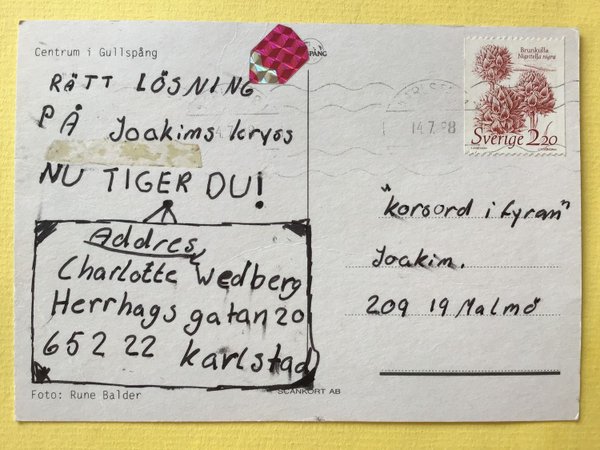 Centrum i Gullspång
RÄTT LÖSNING
PÅ Joakims kryss
NU TIGER DU!
Addres
Charlotte Wedberg
Herrhags gatan 20
652 22 Karlstad
Foto: Rune Balder
SCANKORT AB
14.7.88
Brunkulla
Nigritella nigra
Sverige 2.20
"Korsord i fyran"
Joakim.
209 19 Malmö